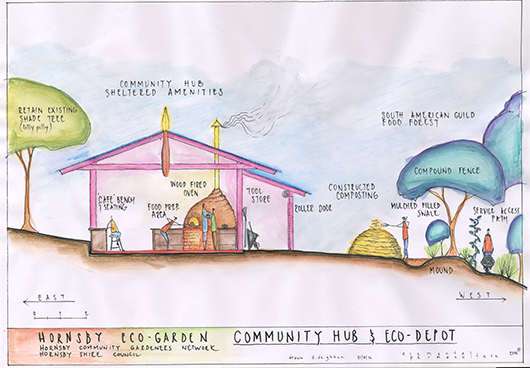 COMMUNITY HUB
SHELTERED AMENITIES
RETAIN EXISTING
SHADE TREE
(lilly pilly)
SOUTH AMERICAN GUILD
FOOD FOREST
COMPOUND FENCE
WOOD FIRED
OVEN
CAFE BENCH
& SEATING
FOOD PREP
AREA
TOOL
STORE
ROLLER DOOR
CONSTRUCTED
COMPOSTING
MULCHED FILLED
SWALE
SERVICE ACCESS
PATH
MOUND
EAST
WEST
HORNSBY ECO-GARDEN COMMUNITY HUB & ECO-DEPOT
HORNSBY COMMUNITY GARDENERS NETWORK
HORNSBY SHIRE COUNCIL
drawn